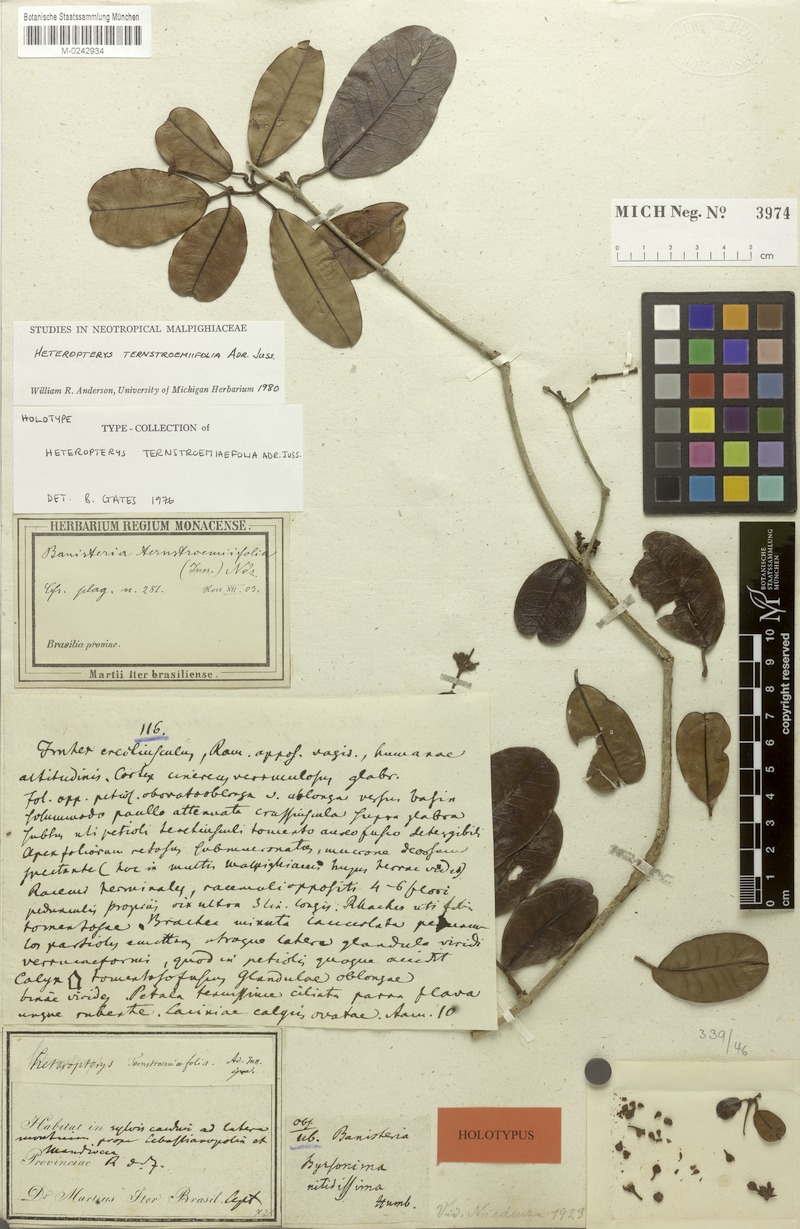 Botanische Staatssammlung München
M-0242934
MICH Neg. No 3974
0 1 2 3 4 5
cm
STUDIES IN NEOTROPICAL MALPIGHIACEAE
HETEROPTERYS TERNSTROEMIIFOLIA ADR. JUSS.
William R. Anderson, University of Michigan Herbarium 1980
HOLOTYPE
TYPE-COLLECTION of
HETEROPTERYS TERNSTROEMIAEFOLIA ADR. JUSS.
DET. B. GATES 1976
HERBARIUM REGIUM MONACENSE.
Banisteria ternstroemiifolia
(Juss.) Ndz.
Cfr. plag. n. 281. XII. 03.
Brasilia proviac.
Martii Iter brasiliense.
BOTANISCHE
STAATSSAMMLUNG
MÜNCHEN
0 1 2 3 4 5 6 7 8 9 10 cm
copyright reserved
116.
Frutex erectiusculus, Ram. appos. vagis., humanae
altitudinis. Cortex cinereus verruculosus glabr.
fol. opp. petiol. obovatooblonga v. oblonga versus basin
solummodo paullo attenuata crassiuscula supra glabra
subtus uti petioli teretiusculi tomento aureofusco detergibili
Apex foliorum retusus submucronatus, mucrone deorsum
spectante (hoc in multis Malpighiaceis hujus terrae vidi)
Racemi terminales, racemuli oppositi 4-6 flori
pedunculis propriis vix ultra 3 lin. longis. Rhachis uti folia
tomentosae. Bractea minuta lanceolata
los partiales utraque latere glandula viridi
verrucaeformi, quod in petiolis quoque accidit
Calyx tomentosofuscus Glandulae oblongae
binae virides. Petala tenuissime ciliata parva flava
ungue rubente. Laciniae calycis ovatae. Stam. 10
Heteropterys Ternstromiaefolia. Ad. Juss.
Habitat in sylvis caeduis ad latera
montium prope Sebastianopolin et
Mandiocca
Provinciae R. d. J.
Dr. Martius Iter Brasil. legit
obs
116. Banisteria
Byrsonima
nitidissima
Humb.
HOLOTYPUS
Vid. Niedenzu 1923
339/46